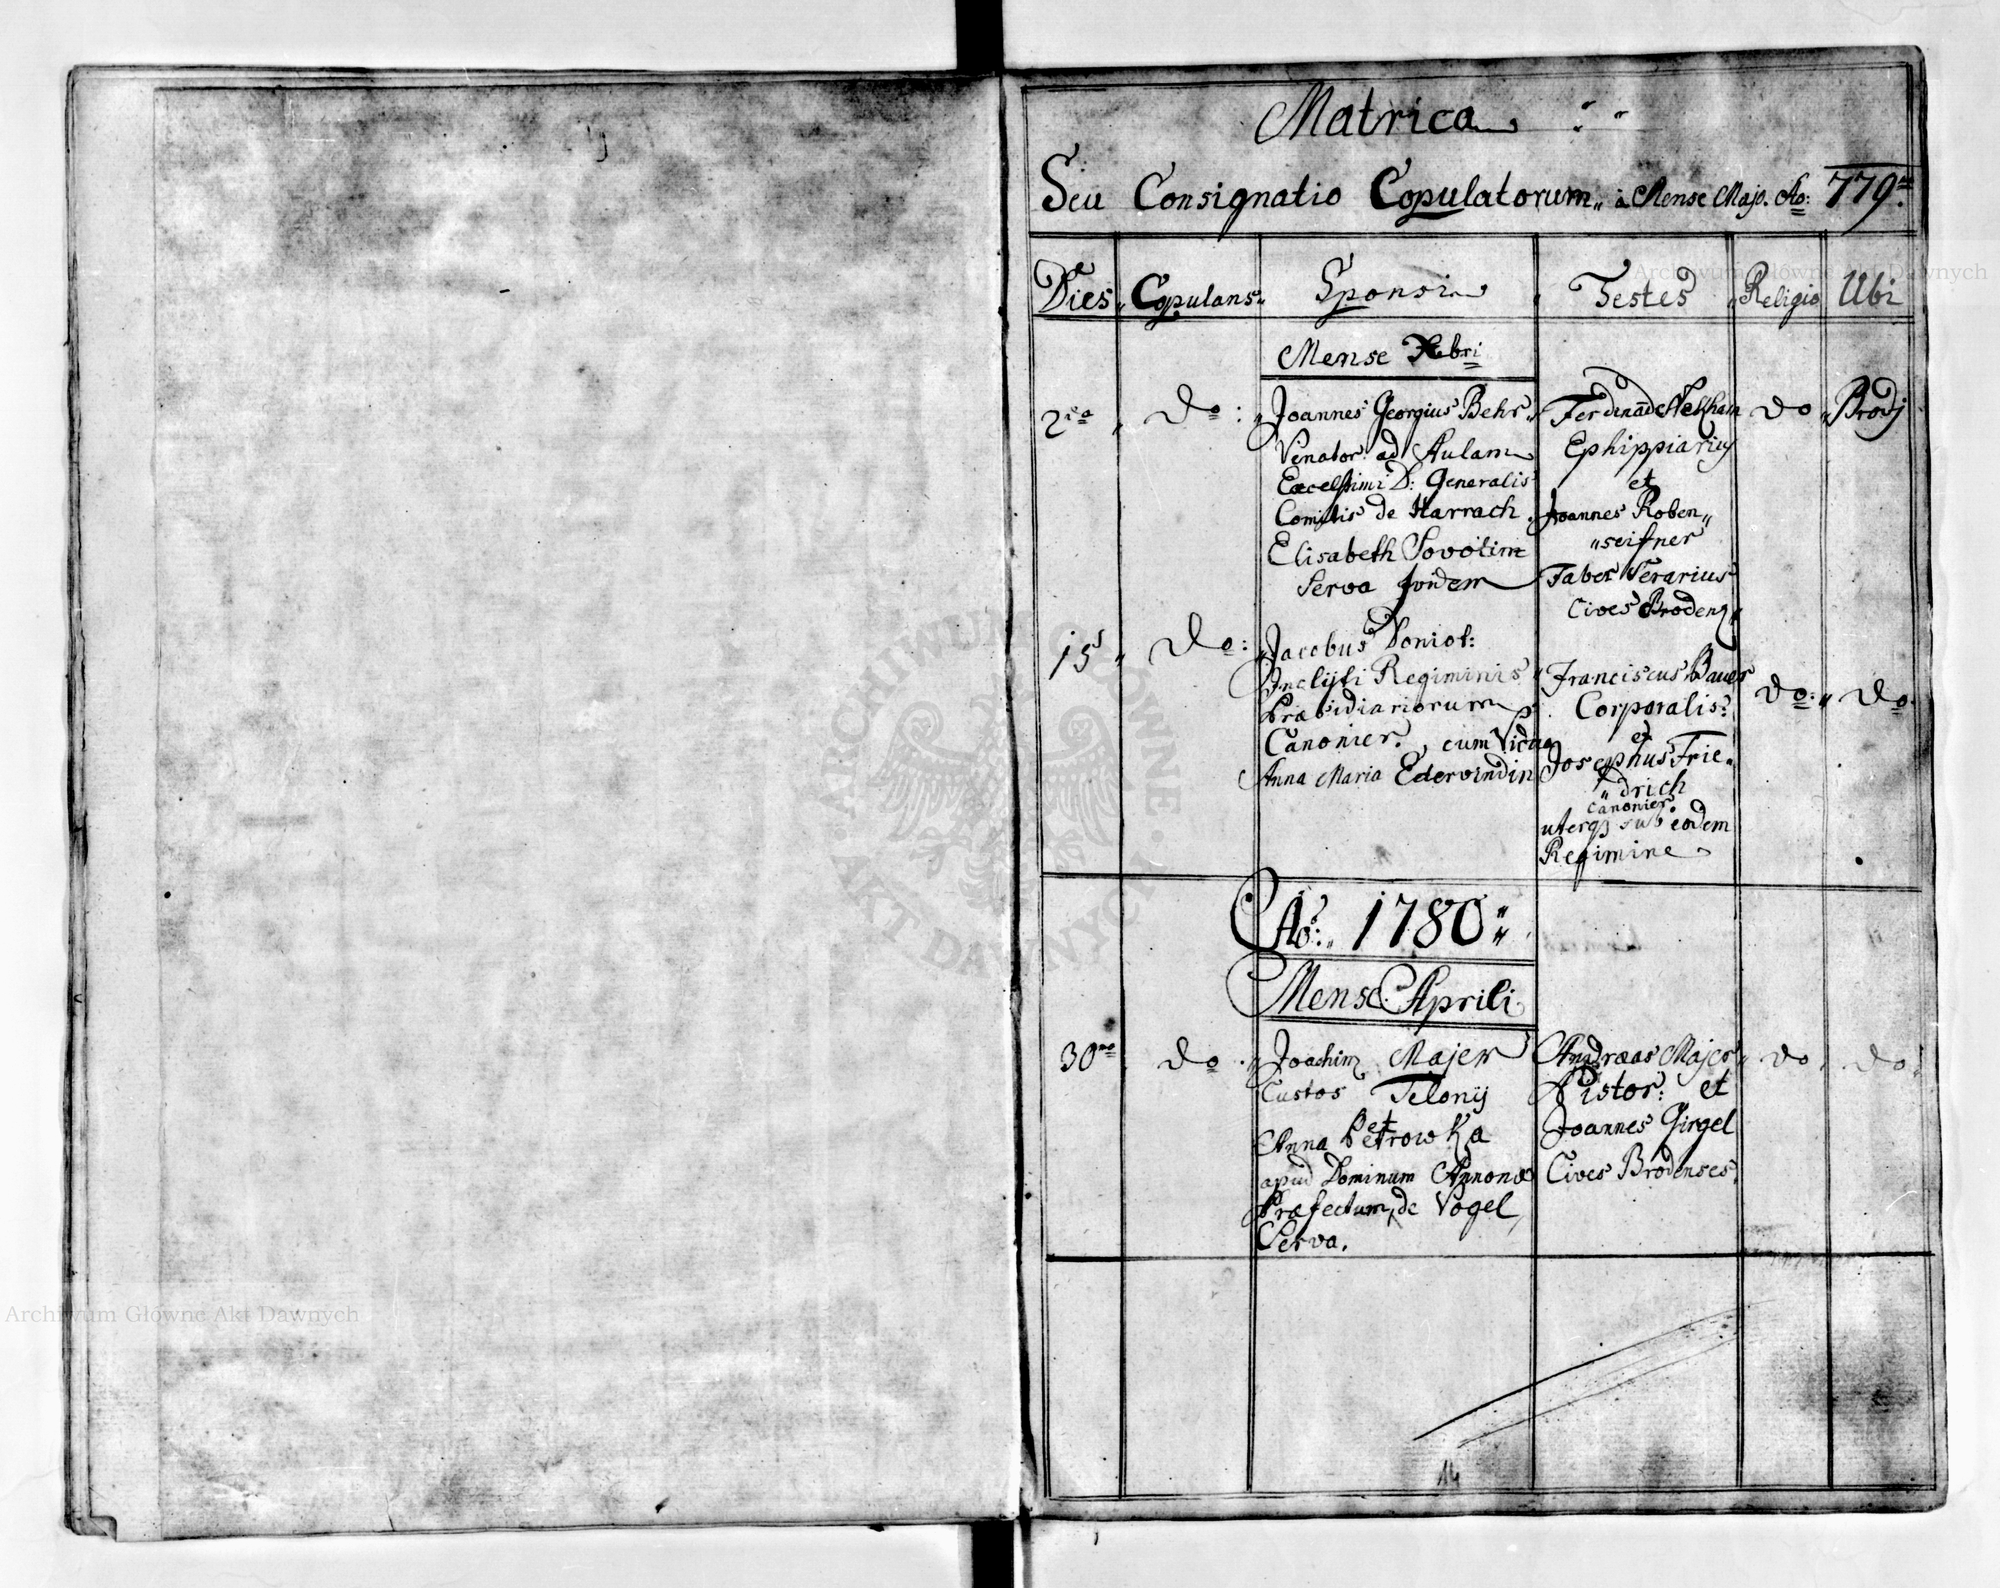 Matrica
Seu Consignatio Copulatorum„ à Mense Majo. Ao: 779.
Dies„ Copulans„ Sponsi „ Testes „ Religio Ubi
Mense Xbri
2da „ Do: „ Joannes Georgius Behr. „ Ferdinãd Do „ Brodij
Venator ad Aulam Ephippiariꝰ
Excelssimi D: Generalis et
Comitis de Harrach. Joannes Roben„
Elisabeth „seifner
Serva Faber Serarius
Cives Brodenꝫ
15 „ Do: „ Jacobus Noniot:
Inclyti Regiminis „ Franciscus Bauer Do: „ Do.
Præsidiariorum Corporalis:
Canonier. cum Vidua et
Anna Maria Josephus Frie„
„drich
Canonier.
uterqꝫ sub eodem
Regimine
Ao: „ 1780 „
Mense Aprili
30mo Do . „ Joachim Majer Andræas Majer „ Do , Do
Custos Telonij Pistor: et
et
Anna Petrowka Joannes Girgel
apud Dominum Annonæ Cives Brodenses.
Præfectum, de Vogel
Serva.
14
ARCHIWUM GŁÓWNE AKT DAWNYCH
Archiwum Główne Akt Dawnych
Archiwum Główne Akt Dawnych